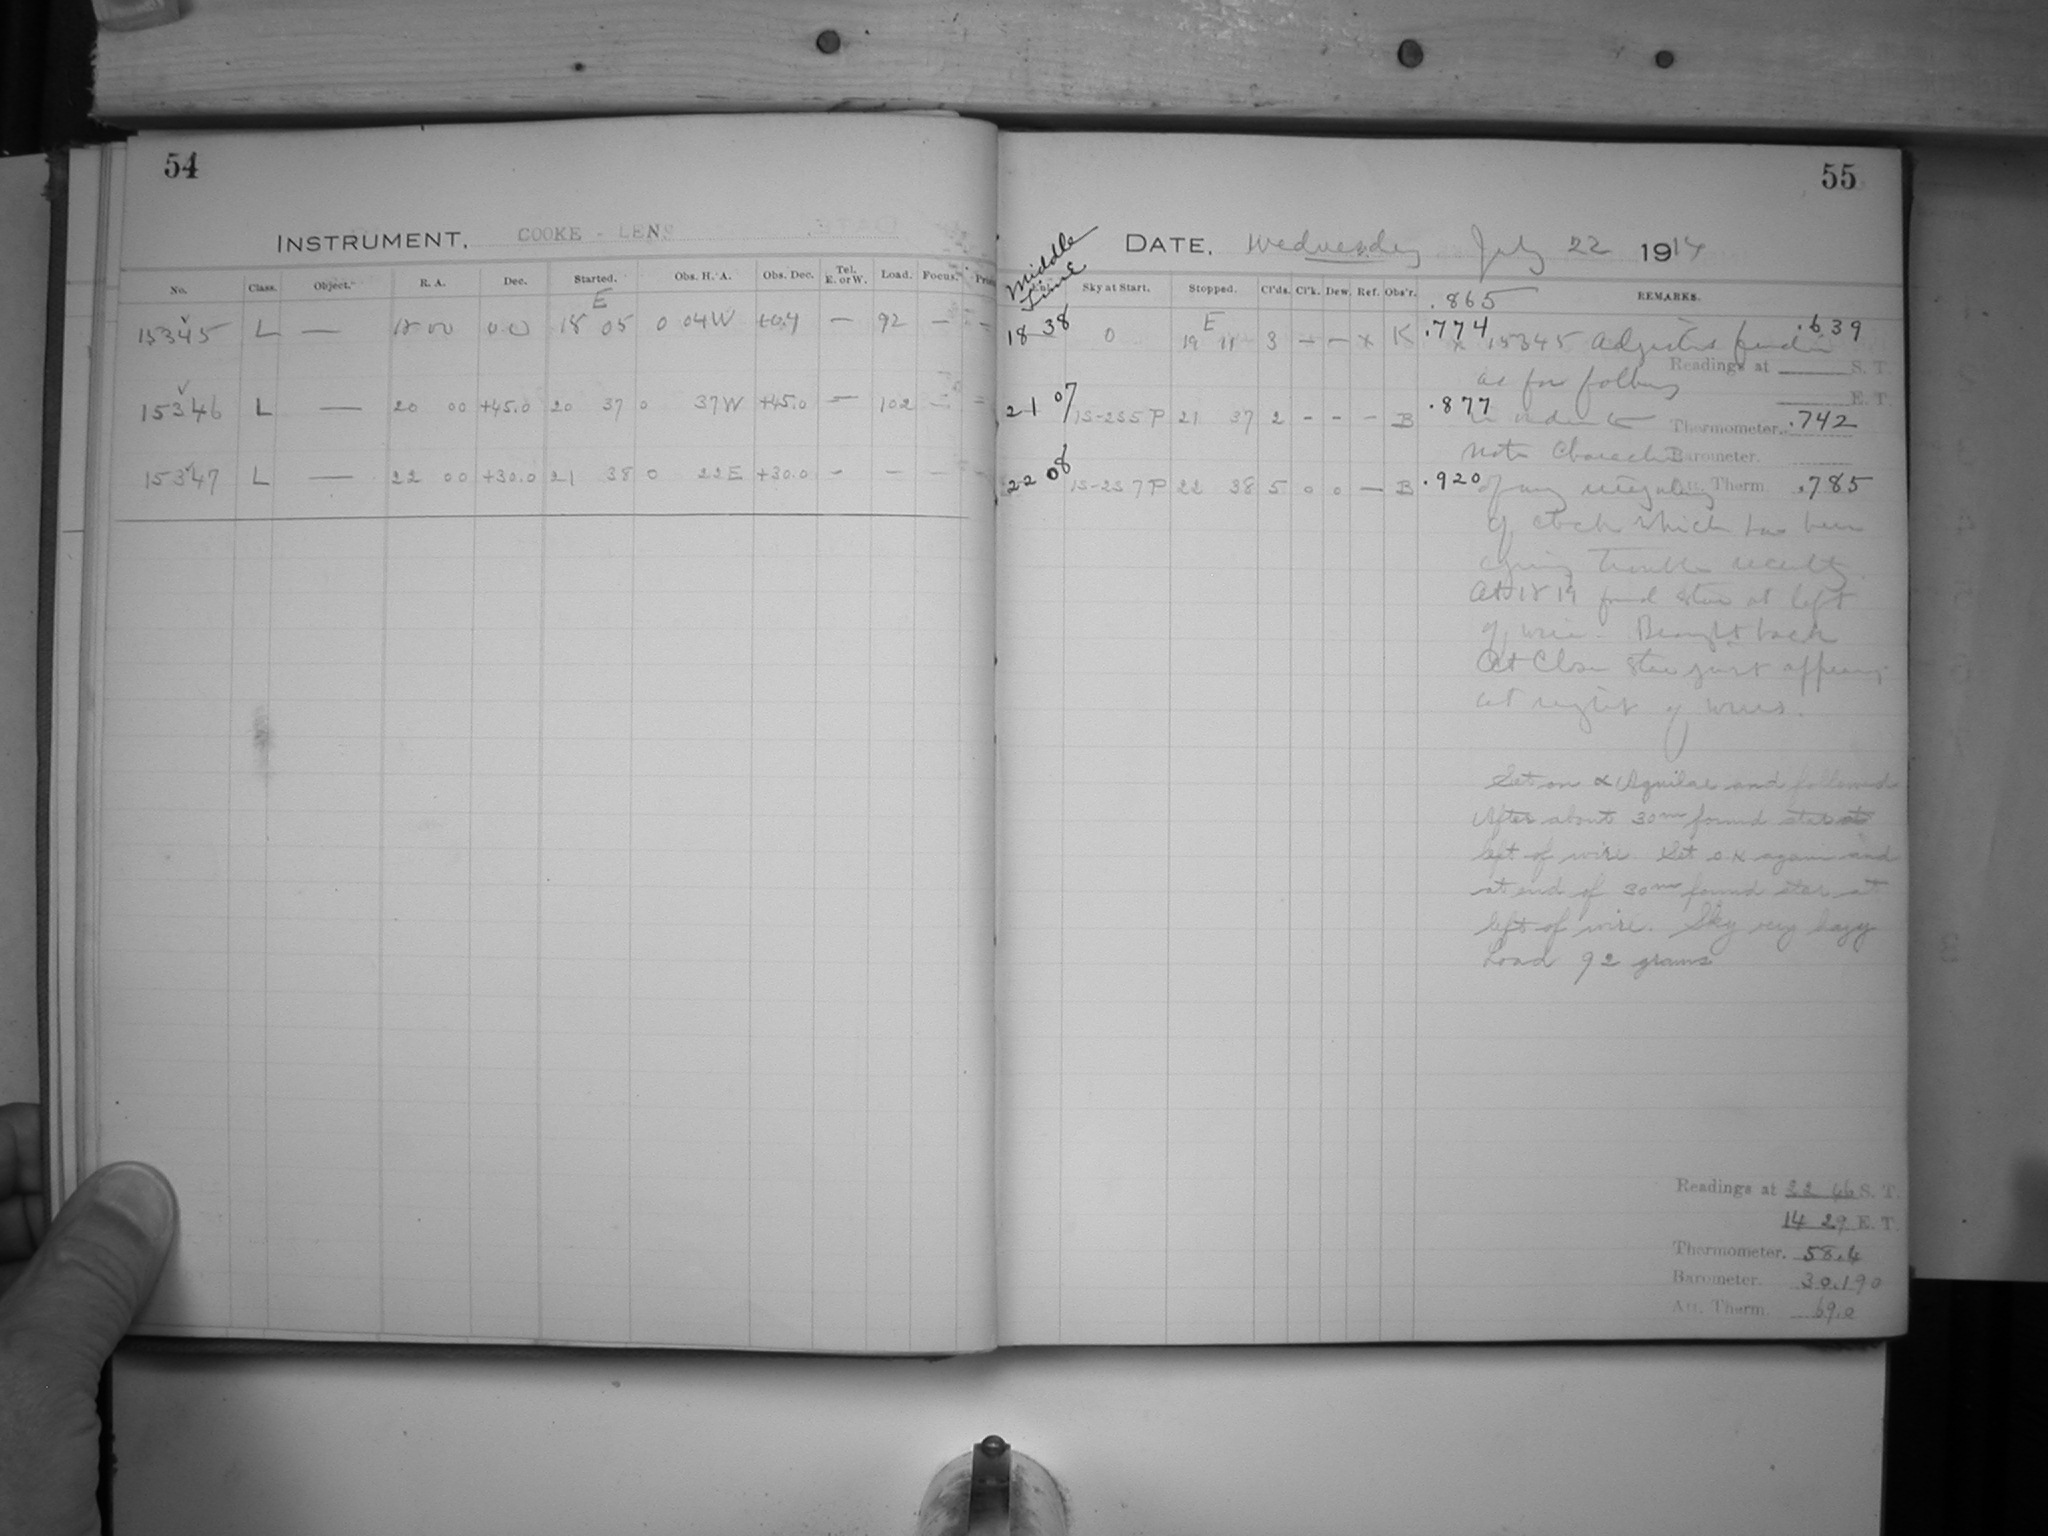 54
INSTRUMENT. COOKE - LENS
No. Class. Object. R. A. Dec. Started. Obs. H. A. Obs. Dec. Tel. E. or W. Load. Focus.
15345 L — 18 00 00 18 E 05 0 04W +0.4 — 92 — —
15346 L — 20 00 +45.0 20 37 0 37W +45.0 — 102 — —
15347 L — 22 00 +30.0 21 38 0 22E +30.0 - — — —
55
DATE. Wednesday July 22 1914
Middle Time Sky at Start. Stopped. Cl'ds. Cl'k. Dew. Ref. Obs'r. .865 REMARKS.
18 38 0 19 E 11 3 — — x K .774 x 15345 Adjusted finder .639
Readings at S. T.
as for follow
E. T.
21 07 1S-2S5P 21 37 2 - - - B .877 in order to Thermometer. .742
note Barometer.
22 08 1S-2S7P 22 38 5 0 0 — B .920 of any Att. Therm. .785
of clock which has been
giving trouble recently
At 18 19 found star at left
of wire. Brought back
At Close star just appears
at right of wires.
Set on α Aquilae and followed
After about 30m found star at
left of wire. Set o x again and
at end of 30m found star at
left of wire. Sky very hazy
Load 92 grams
Readings at 22 46 S. T.
14 29 E. T.
Thermometer. 58.4
Barometer. 30.190
Att. Therm. 69.0